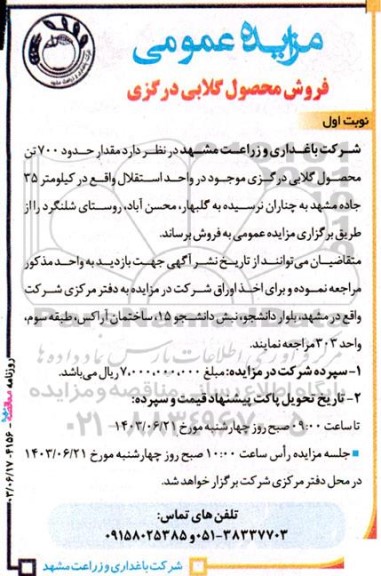 مزایده عمومی
فروش محصول گلابی درگزی
نوبت اول
شرکت باغداری و زراعت مشهد در نظر دارد مقدار حدود ۷۰۰ تن
محصول گلابی درگزی موجود در واحد استقلال واقع در کیلومتر ۳۵
جاده مشهد به چناران نرسیده به گلبهار، محسن آباد، روستای شلنگرد را از
طریق برگزاری مزایده عمومی به فروش برساند.
متقاضیان می‌توانند از تاریخ نشر آگهی جهت بازدید به واحد مذکور
مراجعه نموده و برای اخذ اوراق شرکت در مزایده به دفتر مرکزی شرکت
واقع در مشهد، بلوار دانشجو، نبش دانشجو ۱۵، ساختمان آراکس، طبقه سوم،
واحد ۳۰۳ مراجعه نمایند.
۱- سپرده شرکت در مزایده: مبلغ ۷,۰۰۰,۰۰۰,۰۰۰ ریال می‌باشد.
۲- تاریخ تحویل پاکت پیشنهاد قیمت و سپرده:
تا ساعت ۰۹:۰۰ صبح روز چهارشنبه مورخ ۱۴۰۳/۰۶/۲۱
جلسه مزایده رأس ساعت ۱۰:۰۰ صبح روز چهارشنبه مورخ ۱۴۰۳/۰۶/۲۱
در محل دفتر مرکزی شرکت برگزار خواهد شد.
تلفن های تماس:
۰۵۱-۳۸۳۳۷۷۰۳ و ۰۹۱۵۸۰۲۵۳۸۵
شرکت باغداری و زراعت مشهد
روزنامه مناقصه مزایده ۴۱۵۶ - ۰۳/۰۶/۱۷
پایگاه اطلاع رسانی مناقصه و مزایده
۰۲۱-۸۸۳۴۹۶۷۰-۵